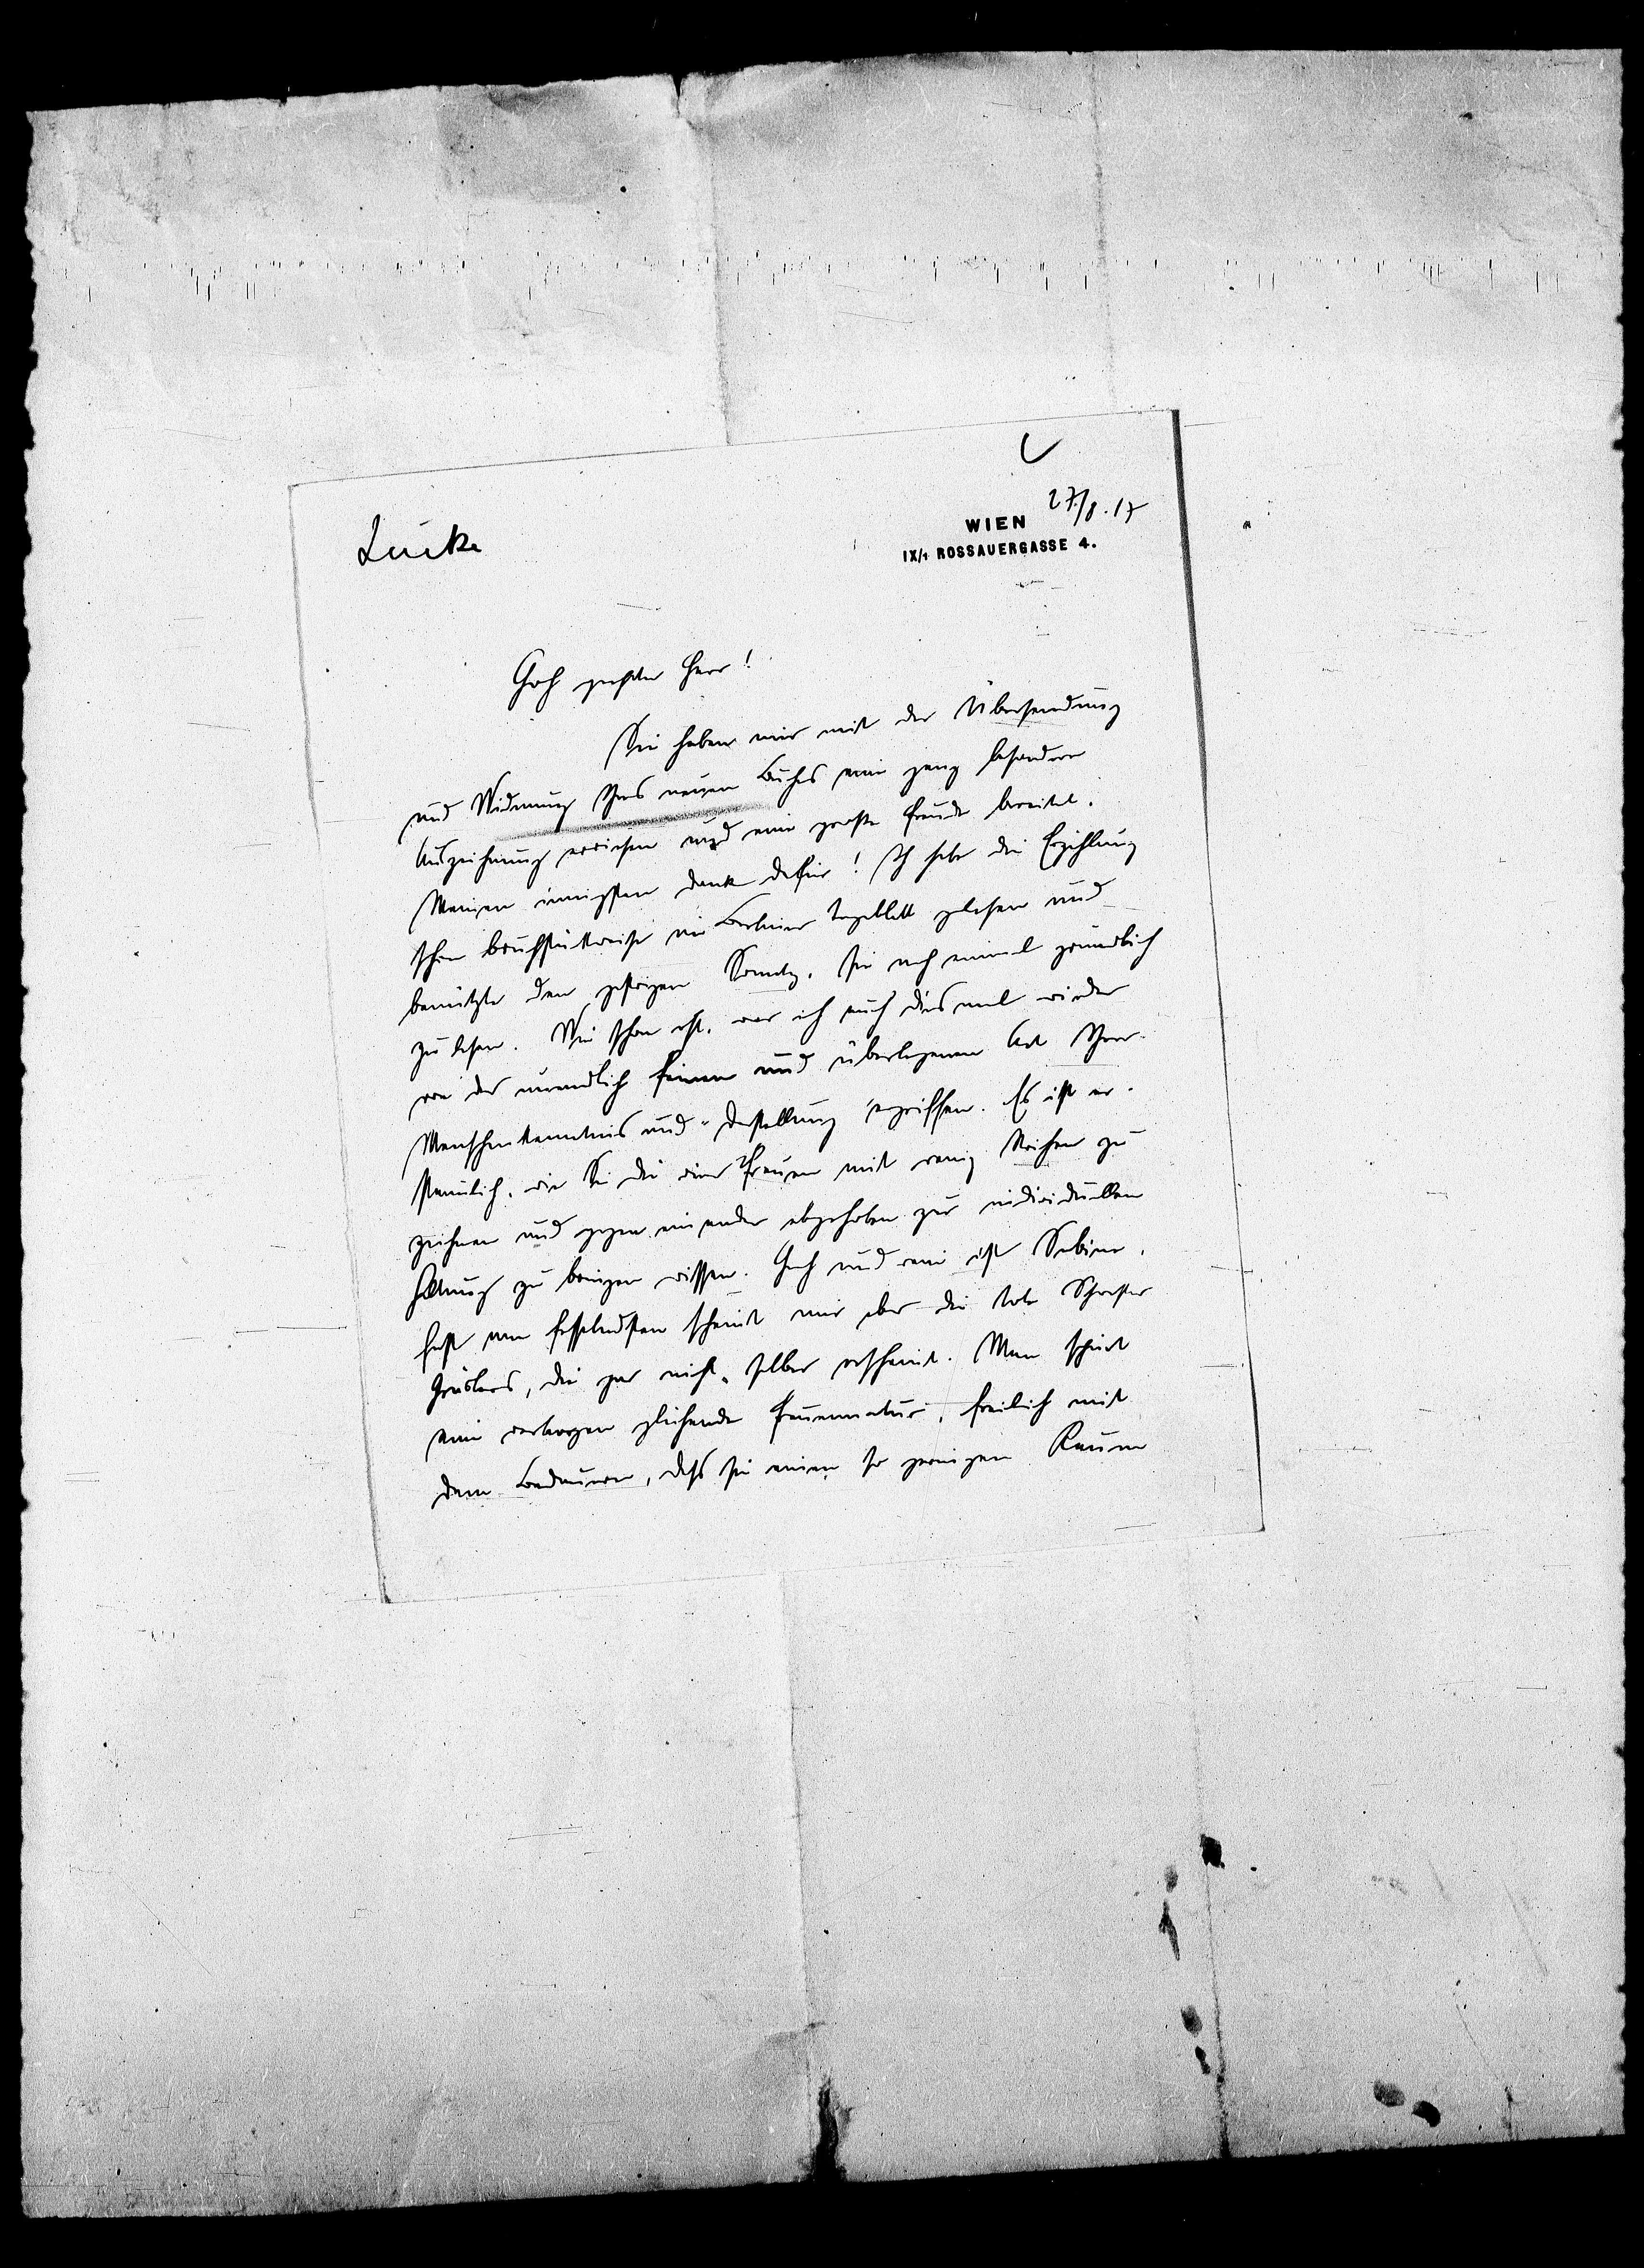 27/8.17
WIEN
IX/1 ROSSAUERGASSE 4.
Lucka
Hoch geehrter Herr!
Sie haben mir mit der Übersendung
und Widmung Ihres neuen Buches eine ganz besondere
Auszeichnung erwiesen und eine große Freude bereitet.
Meinen innigsten Dank dafür! Ich habe die Erzählung
schon bruchstückweise im Berliner Tageblatt gelesen und
benützte den gestrigen Sonntag, sie noch einmal gründlich
zu lesen. Wie schon oft, war ich auch diesmal wieder
von der unendlich feinen und überlegenen Art Ihrer
Menschenkenntnis und -Darstellung ergriffen. Es ist er-
staunlich, wie Sie die vier Frauen mit wenig Strichen zu
zeichnen und gegen einander abgehoben zur individuellen
Haltung zu bringen wissen. Hoch und rein ist Sabine,
fast am fesselndsten scheint mir aber die tote Schwester
Gräslers, die gar nicht selber erscheint. Man spürt
eine verborgen glühende Frauennatur, freilich mit
dem Bedauern, daß sie einen so geringen Raum